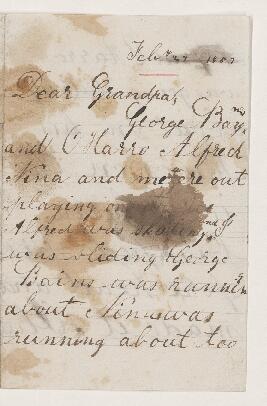 Feb 27
Dear Grandpa,
George Bay
and Harro Alfred
Nina and me are out
playing on
Alfred was skating and I
was sliding George
Bains was runnin
about Nina was
running about too